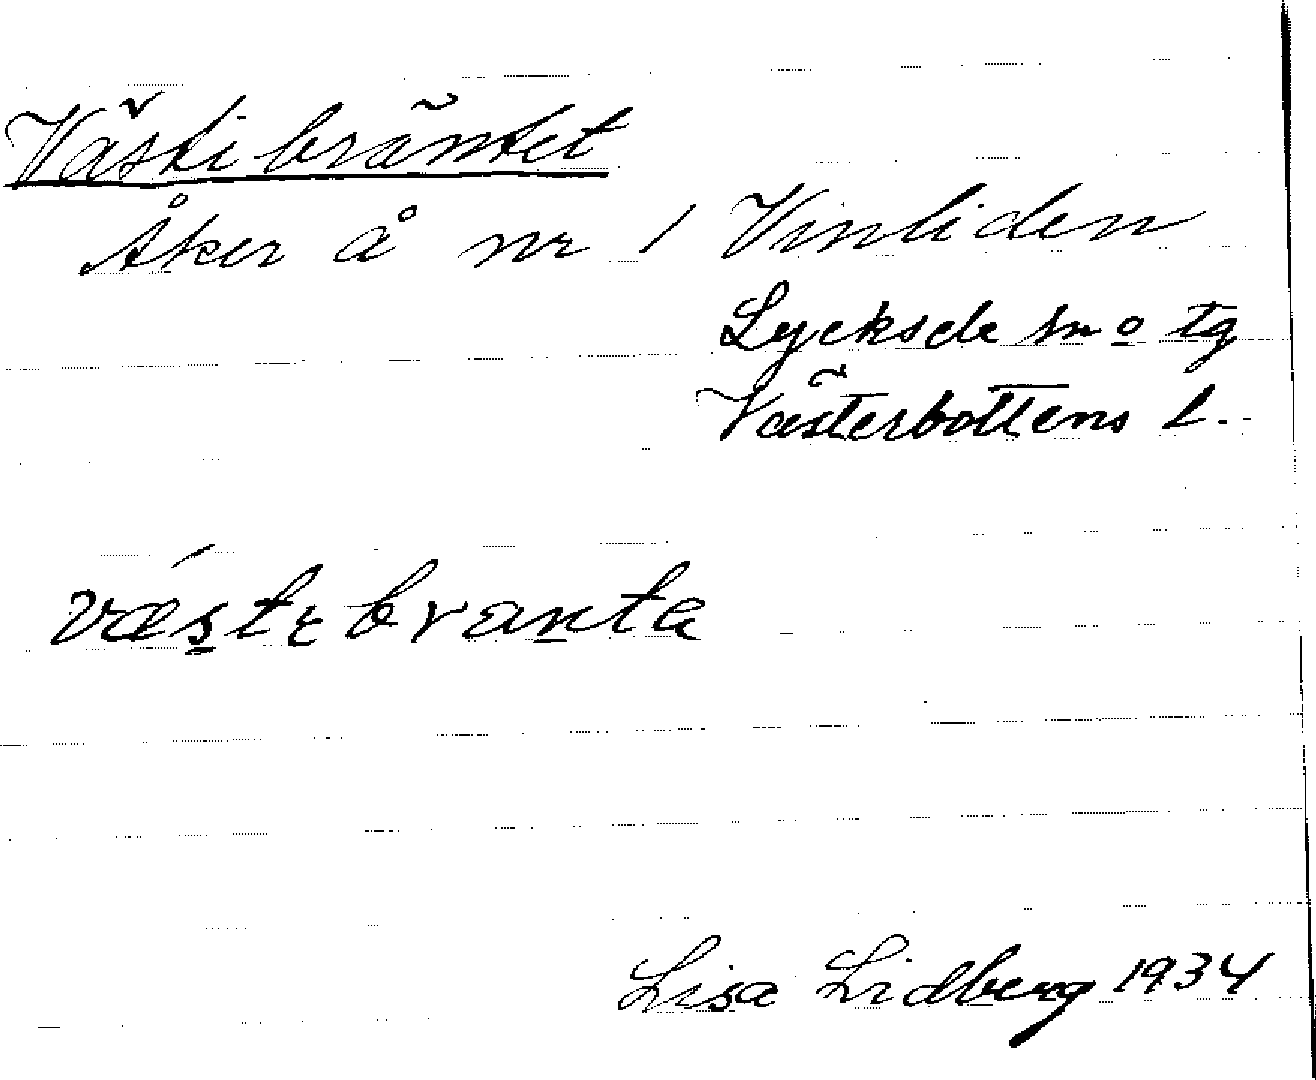 Västibräntet
Åker å nr 1 Vinliden
Lycksele sn o tg
Västerbottens l.
væstebranta
Lisa Lidberg 1934